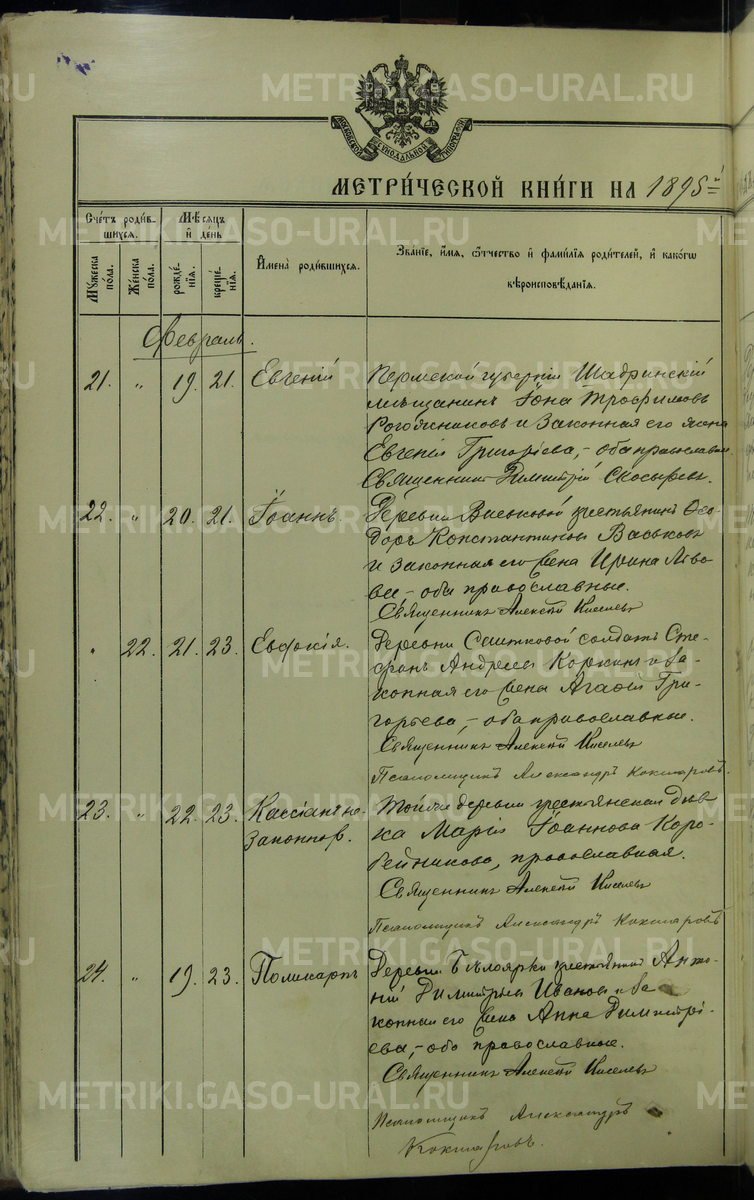 МОСКОВСКОЙ СѴНОДАЛЬНОЙ ТИПОГРАФІИ
МЕТРИ́ЧЕСКОЙ КНИ́ГИ НА 1895й
Сче́тъ роди́вшихся.
Мѣ́сяцъ и҆ де́нь
Мꙋ́жеска по́ла.
Же́нска по́ла.
рожде́нїѧ.
креще́нїѧ.
И҆мена̀ роди́вшихся.
Зва́нїе, и҆́мѧ, ѻ҆́тчество и҆ фами́лїѧ роди́телей, и҆ како́гѡ
вѣроисповѣ́данїѧ.
Февраль.
21. " 19. 21. Евгеній
Пермской губерніи Шадринскій
мѣщанинъ Іона Трофимовъ
Рогожниковъ и законная его жена
Евгенія Григоріева, – оба православные
Священникъ Димитрій Скосыревъ.
22. " 20. 21. Іоаннъ.
Деревни Васьковой крестьянинъ Ѳео-
доръ Константиновъ Васьковъ
и законная его жена Ирина Льво-
ва, – оба православные.
Священникъ Алексей Киселевъ
" 22. 21. 23. Евдокія.
Деревни солдатъ Сте-
фанъ Андреевъ Коркинъ и за-
конная его жена Агафія Гри-
горьева, – оба православные.
Священникъ Алексей Киселевъ
Псаломщикъ Александръ Кокшаровъ.
23. " 22. 23. Кассіанъ не-
законнор.
Той же деревни крестьянская дѣв-
ка Марія Іоаннова Коро-
бейникова, православная.
Священникъ Алексей Киселевъ
Псаломщикъ Александръ Кокшаровъ
24. " 19. 23. Поликарпъ
Деревни Бѣлоярки крестьянинъ Анто-
ній Димитріевъ Ивановъ и за-
конная его жена Анна Димитрі-
ева, – оба православные.
Священникъ Алексей Киселевъ
Псаломщикъ Александръ
Кокшаровъ.
METRIKI.GASO-URAL.RU